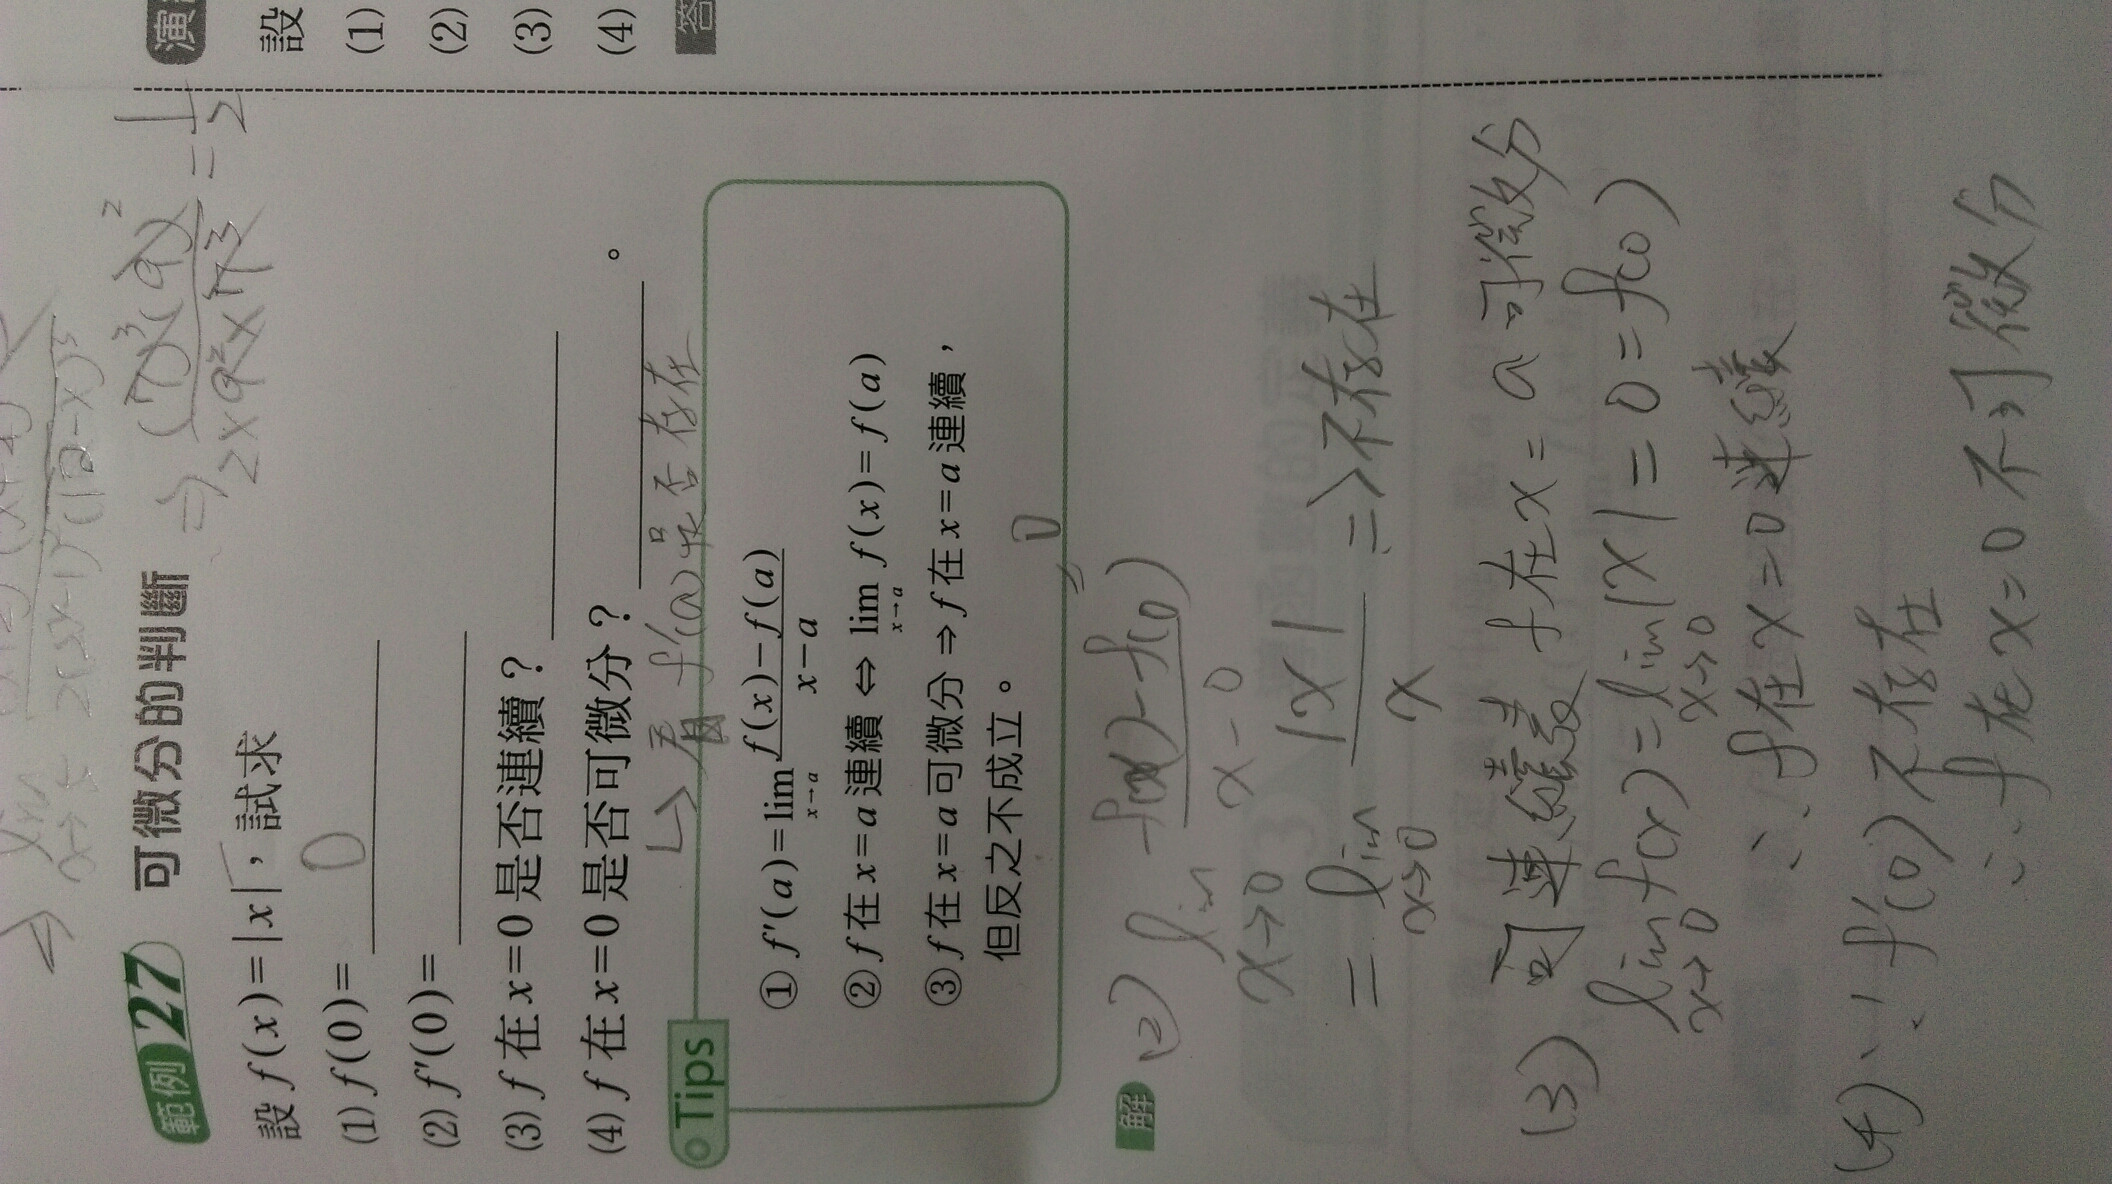 ⇒ (7)³(9)² / 2×9²×7³ = 1/2
範例 27 可微分的判斷
設 f(x)=|x|，試求
(1) f(0)= 0
(2) f'(0)=
(3) f 在 x=0 是否連續？
(4) f 在 x=0 是否可微分？ 。
↳ 看 f'(a) 是否存在
Tips
① f'(a)=lim x→a f(x)−f(a) / x−a
② f 在 x=a 連續 ⇔ lim x→a f(x)=f(a)
③ f 在 x=a 可微分 ⇒ f 在 x=a 連續，
但反之不成立。
解 (2) lim x→0 f(x)-f(0) / x-0
0
= lim x→0 |x| / x => 不存在
(3) 連續 f在x=a可微分
lim x→0 f(x)= lim x→0 |x| = 0 = f(0)
∴ f在x=0連續
(4) ∵ f'(0)不存在
∴ f在x=0不可微分
演
設
(1)
(2)
(3)
(4)
答